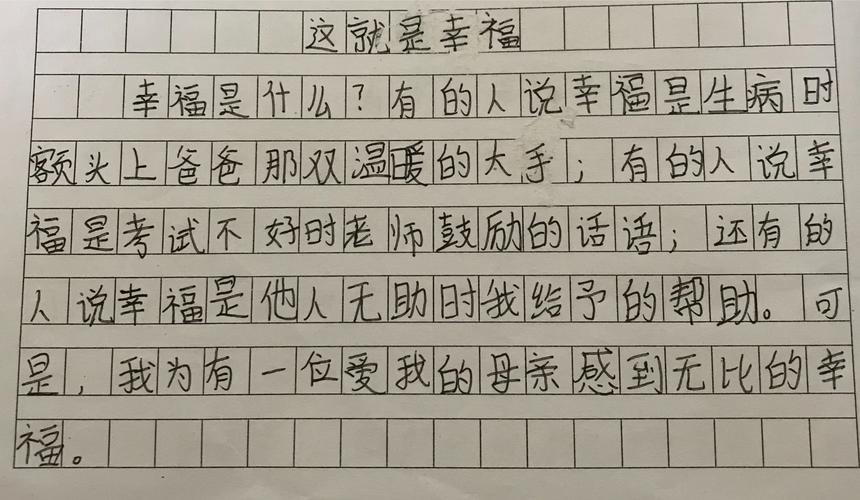 这就是幸福
幸福是什么？有的人说幸福是生病时
额头上爸爸那双温暖的大手；有的人说幸
福是考试不好时老师鼓励的话语；还有的
人说幸福是他人无助时我给予的帮助。可
是，我为有一位爱我的母亲感到无比的幸
福。